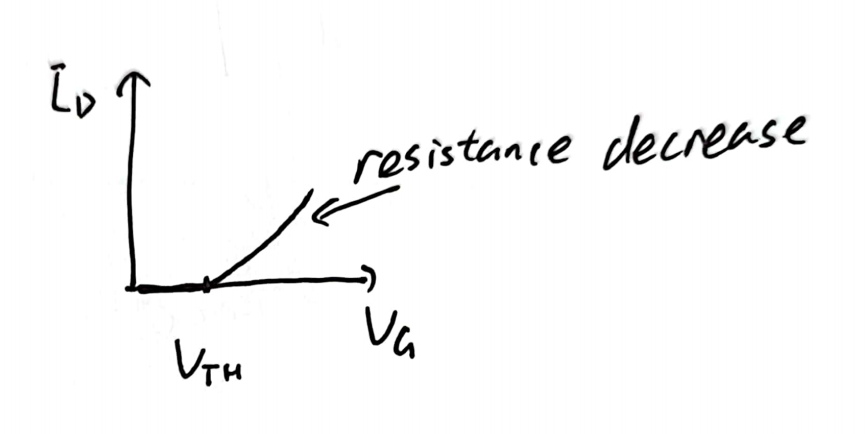 I_D
resistance decrease
V_G
V_TH